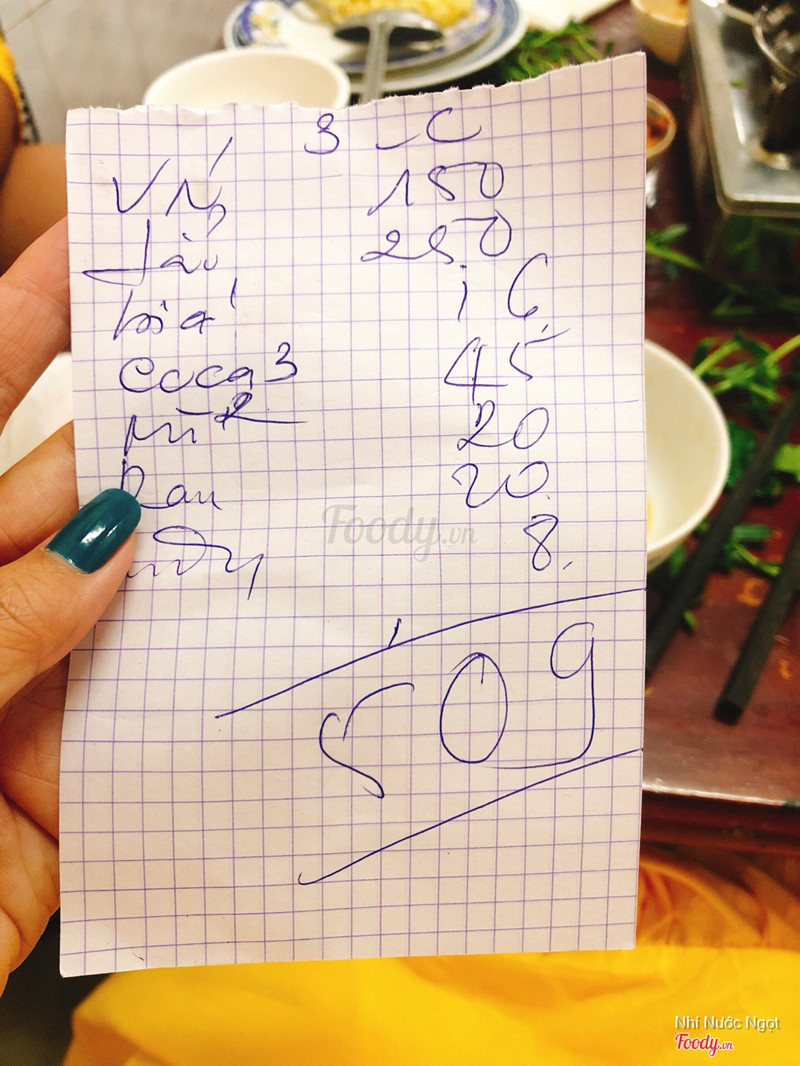 3 - C
Vú 150
Lẩu 250
bia 1 16
Coca 3 45
mì 2 20
Rau 20
8
509
Foody.vn
Nhí Nước Ngọt
Foody.vn